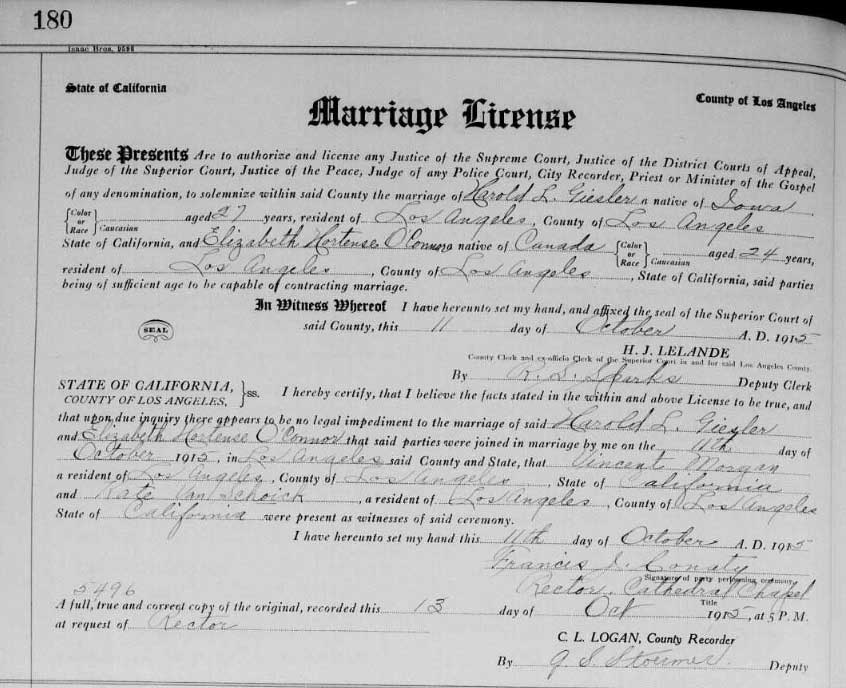 180
Isaac Bros. 9598
State of California
County of Los Angeles
Marriage License
These Presents Are to authorize and license any Justice of the Supreme Court, Justice of the District Courts of Appeal,
Judge of the Superior Court, Justice of the Peace, Judge of any Police Court, City Recorder, Priest or Minister of the Gospel
of any denomination, to solemnize within said County the marriage of Harold L. Giesler a native of Iowa
{Color or Race} Caucasian aged 27 years, resident of Los Angeles, County of Los Angeles
State of California, and Elizabeth Hortense O'Connor native of Canada {Color or Race} Caucasian aged 24 years,
resident of Los Angeles, County of Los Angeles, State of California, said parties
being of sufficient age to be capable of contracting marriage.
In Witness Whereof I have hereunto set my hand, and affixed the seal of the Superior Court of
SEAL
said County, this 11 day of October A. D. 1915
H. J. LELANDE
County Clerk and ex-officio Clerk of the Superior Court in and for said Los Angeles County.
By R. S. Sparks Deputy Clerk
STATE OF CALIFORNIA,
COUNTY OF LOS ANGELES, } ss. I hereby certify, that I believe the facts stated in the within and above License to be true, and
that upon due inquiry there appears to be no legal impediment to the marriage of said Harold L. Giesler
and Elizabeth Hortense O'Connor that said parties were joined in marriage by me on the 11th day of
October 1915, in Los Angeles said County and State, that Vincent Morgan
a resident of Los Angeles, County of Los Angeles, State of California
and Kate Van Schoick, a resident of Los Angeles, County of Los Angeles
State of California were present as witnesses of said ceremony.
I have hereunto set my hand this 11th day of October A. D. 1915
Francis J. Conaty
Signature of party performing ceremony
Rector, Cathedral Chapel
Title
5496
A full, true and correct copy of the original, recorded this 13 day of Oct 1915, at 5 P. M.
at request of Rector
C. L. LOGAN, County Recorder
By J. S. Stoermer Deputy